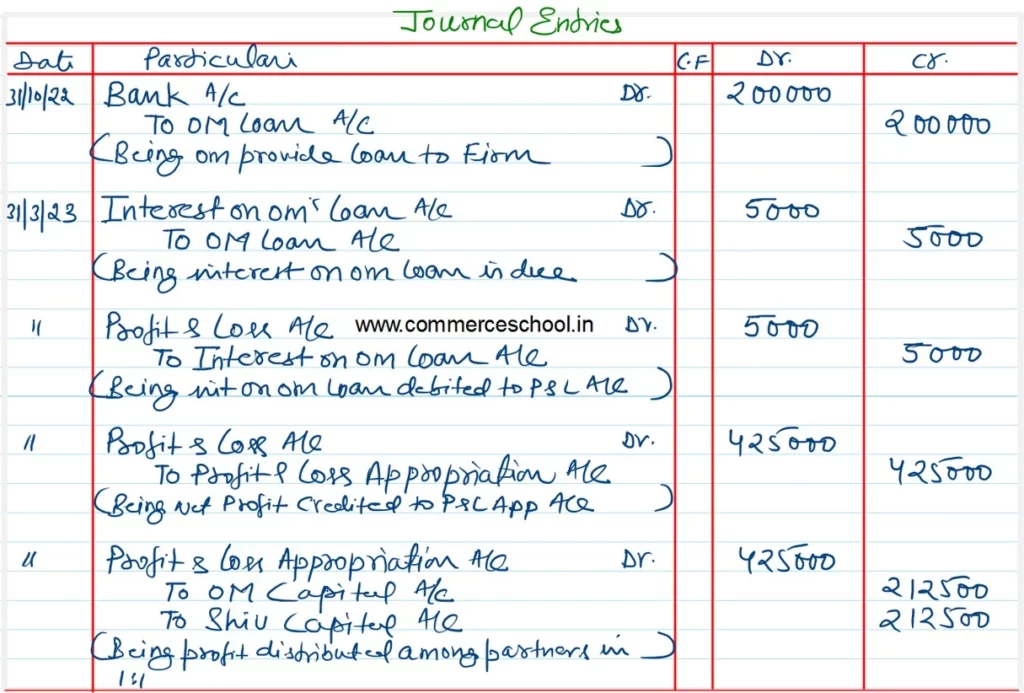 Journal Entries
Date Particulari C.F Dr. Cr.
31/10/22 Bank A/c Dr. 200000
To OM Loan A/c 200000
(Being om provide loan to Firm )
31/3/23 Interest on om's loan A/c Dr. 5000
To OM Loan A/c 5000
(Being interest on om loan in due )
" Profit & Loss A/c www.commerceschool.in Dr. 5000
To Interest on om loan A/c 5000
(Being int on om loan debited to P&L A/c )
" Profit & Loss A/c Dr. 425000
To Profit & Loss Appropriation A/c 425000
(Being Net Profit Credited to P&L App A/c )
" Profit & Loss Appropriation A/c Dr. 425000
To OM Capital A/c 212500
To Shiv Capital A/c 212500
(Being profit distributed among partners in )
1:1